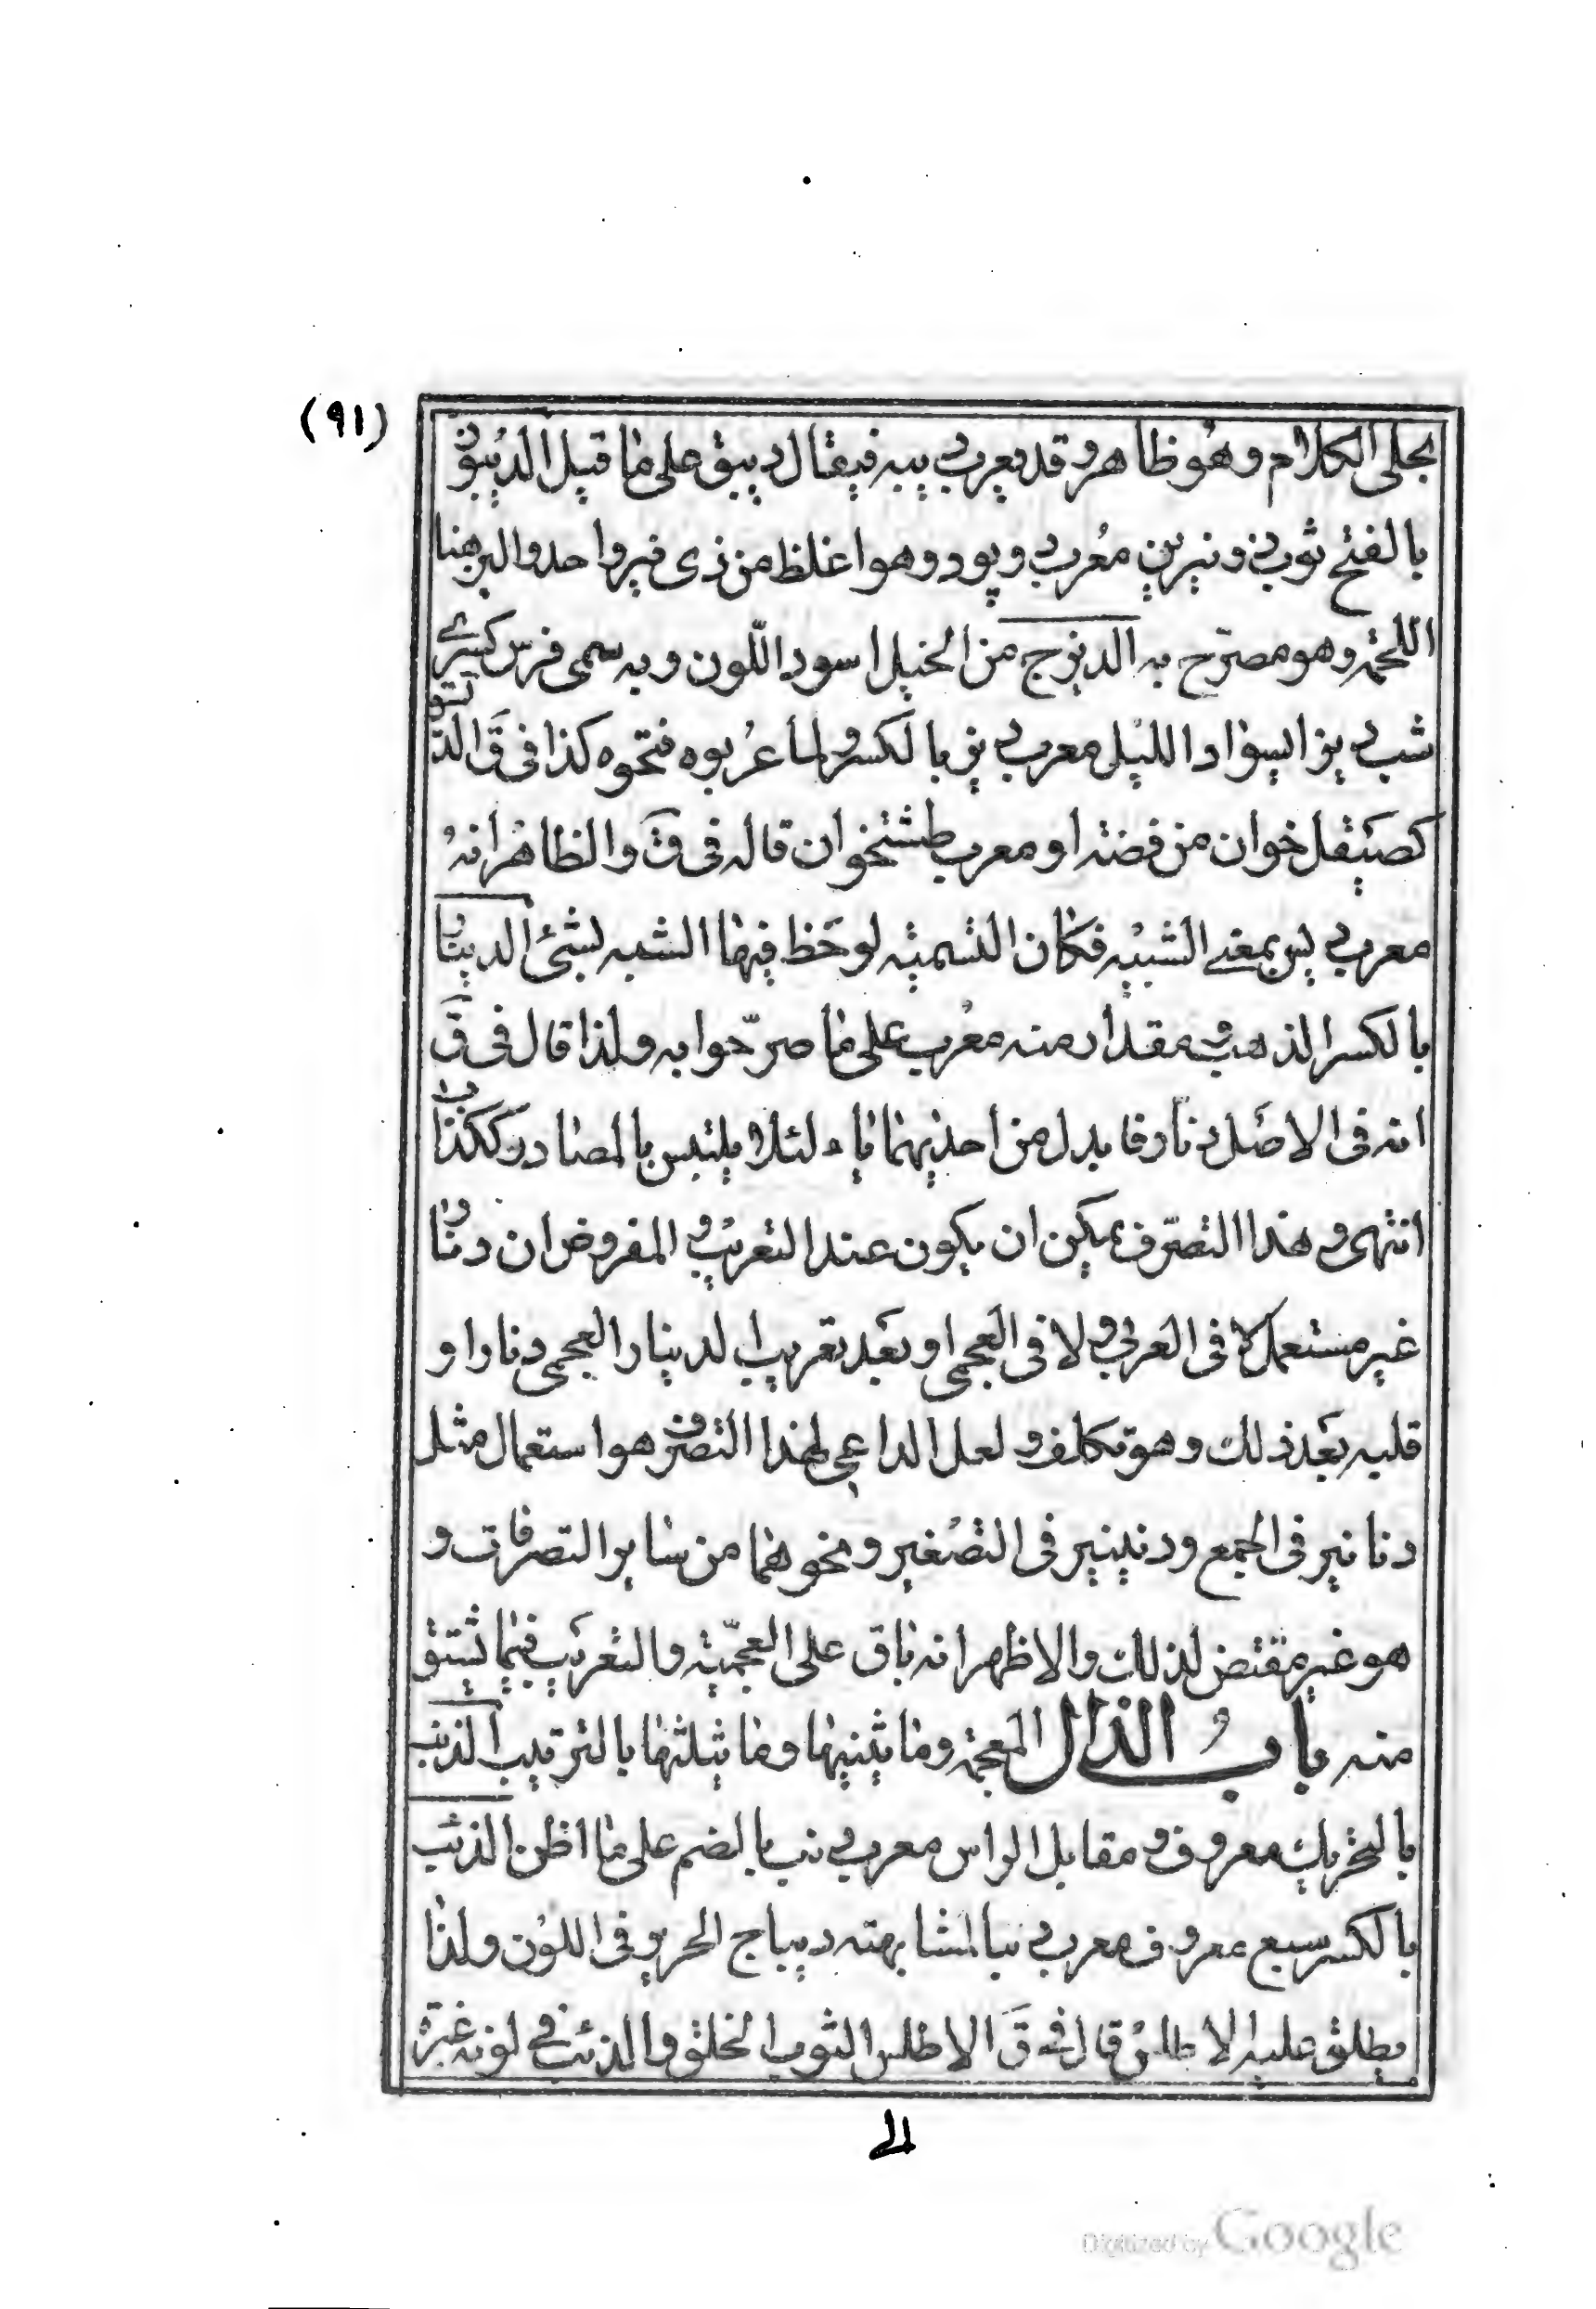 (٩١)
بجلى الكلام وهو ظاهر وقد يعرب بيبه فيقال ديبق على ما قيل الديبوذ
بالفتح ثوب ذو نيرين معرب دوپود وهو اغلظ من ذى نير واحد والنير هنا
اللحمة وهو مصرّح به الديزج من الخيل اسود اللّون وبه سمى فرس كسرى
شب ديز اى سواد الليل معرب ديز بالكسر ولما عربوه فتحوه كذا فى ق الدّيسق
كصيقل خوان من فضة او معرب طشتخوان قاله فى ق والظاهر انه
معرب ديس بمعنى الشبيه فكان التسمية لوحظ فيها الشبه لشئ الدينار
بالكسر الذهب ومقدار منه معرب على ما صرّحوا به ولذا قال فى ق
انه فى الاصل دنّار فابدل من احديهما ياء لئلا يلتبس بالمصادر ككذاب
انتهى وهذا التصرّف يمكن ان يكون عند التعريب والمفروض ان دنار
غير مستعمل لا فى العربى ولا فى العجمى او بعد تعريب الدينار العجمى دنارا و
قلبه بعد ذلك وهو تكلف ولعل الداعى لهذا التصرف هو استعمال مثل
دنانير فى الجمع ودنينير فى التصغير ونحوهما من سائر التصرفات و
هو غير مقتض لذلك والاظهر انه باق على العجميّة والتعريب فيما يشتق
منه باب الذال المعجمة وما يثنيها وما يثلثها بالترتيب الذنب
بالتحريك معروف ومقابل الراس معرب دنب بالضم على ما اظن الذئب
بالكسر سبع معروف معرب ديبا لمشابهته ديباج الحرير فى اللون ولذا
يطلق عليه الاطلس قال فى ق الاطلس الثوب الخلق والذئب فى لونه غبرة
الى
Digitized by Google